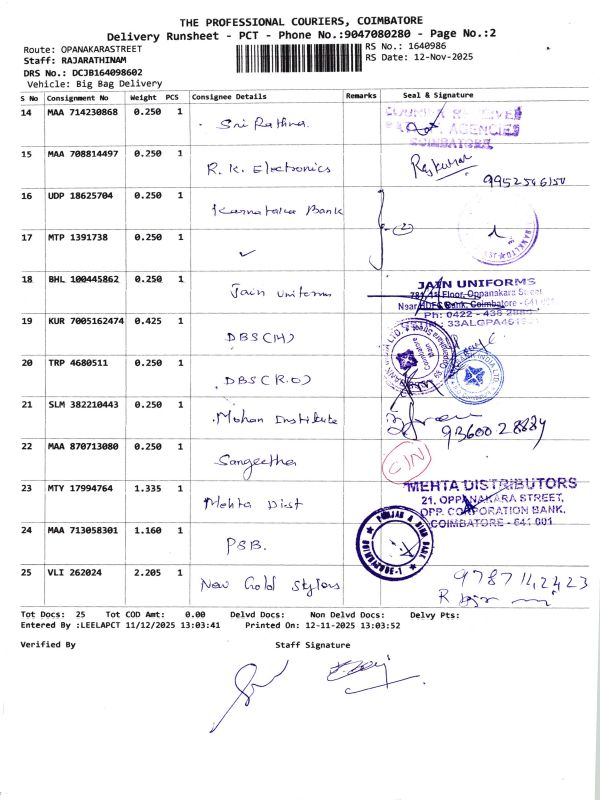 THE PROFESSIONAL COURIERS, COIMBATORE
Delivery Runsheet - PCT - Phone No.:9047080280 - Page No.:2
Route: OPANAKARASTREET
RS No.: 1640986
Staff: RAJARATHINAM
RS Date: 12-Nov-2025
DRS No.: DCJB164098602
Vehicle: Big Bag Delivery
S No Consignment No Weight PCS Consignee Details Remarks Seal & Signature
14 MAA 714230868 0.250 1 Sri Rathna
AGENCIES
COIMBATORE
15 MAA 708814497 0.250 1 R.K. Electronics Rajkumar
16 UDP 18625704 0.250 1 Karnataka Bank (2)
17 MTP 1391738 0.250 1 ✓
18 BHL 100445862 0.250 1 Jain Uniforms
JAIN UNIFORMS
Floor, Oppanakara Street
Near HDFC Bank, Coimbatore - 641 001
Ph: 0422 - 436
19 KUR 7005162474 0.425 1 DBS(M)
20 TRP 4680511 0.250 1 DBS(R.O)
21 SLM 382210443 0.250 1 Mohan Institute
22 MAA 870713080 0.250 1 Sangeetha C/N
23 MTY 17994764 1.335 1 Mehta Dist
MEHTA DISTRIBUTORS
21, OPPANAKARA STREET,
OPP. CORPORATION BANK,
COIMBATORE - 641 001
24 MAA 713058301 1.160 1 PSB.
PUNJAB & SIND BANK
25 VLI 262024 2.205 1 New Gold Stylors 9787142423
Tot Docs: 25 Tot COD Amt: 0.00 Delvd Docs: Non Delvd Docs: Delvy Pts:
Entered By :LEELAPCT 11/12/2025 13:03:41 Printed On: 12-11-2025 13:03:52
Verified By Staff Signature